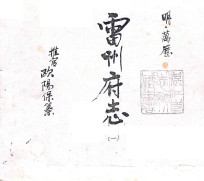 明·萬歷
雷州府志
(一)
推官歐陽保纂